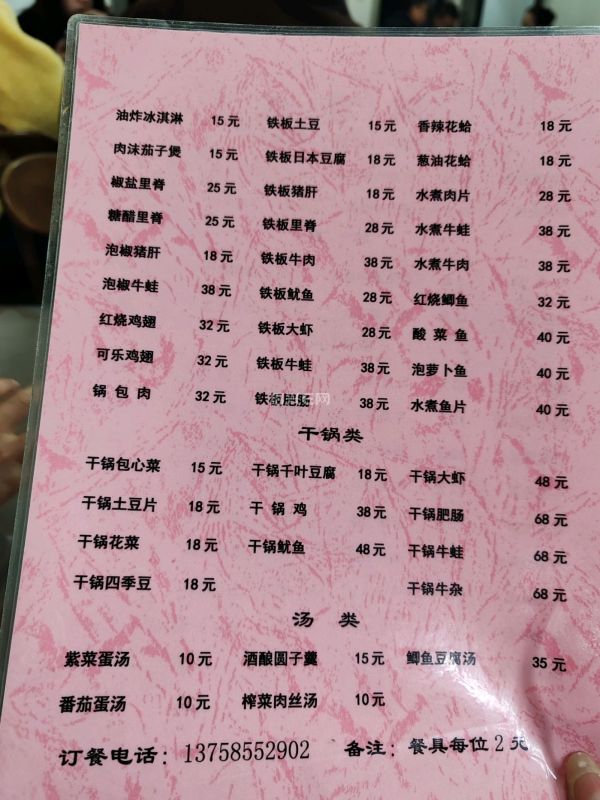 油炸冰淇淋 15元 铁板土豆 15元 香辣花蛤 18元
肉沫茄子煲 15元 铁板日本豆腐 18元 葱油花蛤 18元
椒盐里脊 25元 铁板猪肝 18元 水煮肉片 28元
糖醋里脊 25元 铁板里脊 28元 水煮牛蛙 38元
泡椒猪肝 18元 铁板牛肉 38元 水煮牛肉 38元
泡椒牛蛙 38元 铁板鱿鱼 28元 红烧鲫鱼 32元
红烧鸡翅 32元 铁板大虾 28元 酸菜鱼 40元
可乐鸡翅 32元 铁板牛蛙 38元 泡萝卜鱼 40元
锅包肉 32元 铁板肥肠 38元 水煮鱼片 40元
干锅类
干锅包心菜 15元 干锅千叶豆腐 18元 干锅大虾 48元
干锅土豆片 18元 干锅鸡 38元 干锅肥肠 68元
干锅花菜 18元 干锅鱿鱼 48元 干锅牛蛙 68元
干锅四季豆 18元 干锅牛杂 68元
汤类
紫菜蛋汤 10元 酒酿圆子羹 15元 鲫鱼豆腐汤 35元
番茄蛋汤 10元 榨菜肉丝汤 10元
订餐电话：13758552902 备注：餐具每位2元